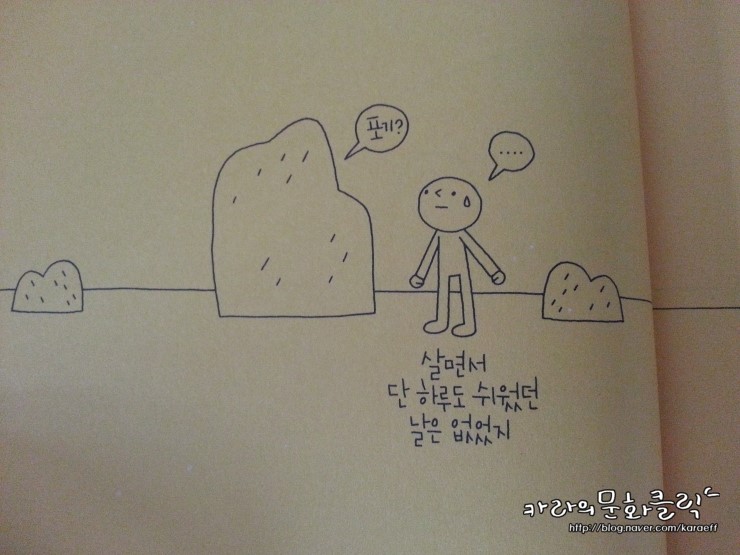 포기?
....
살면서
단 하루도 쉬웠던
날은 없었지
카라의문화클릭
http://blog.naver.com/karaeff